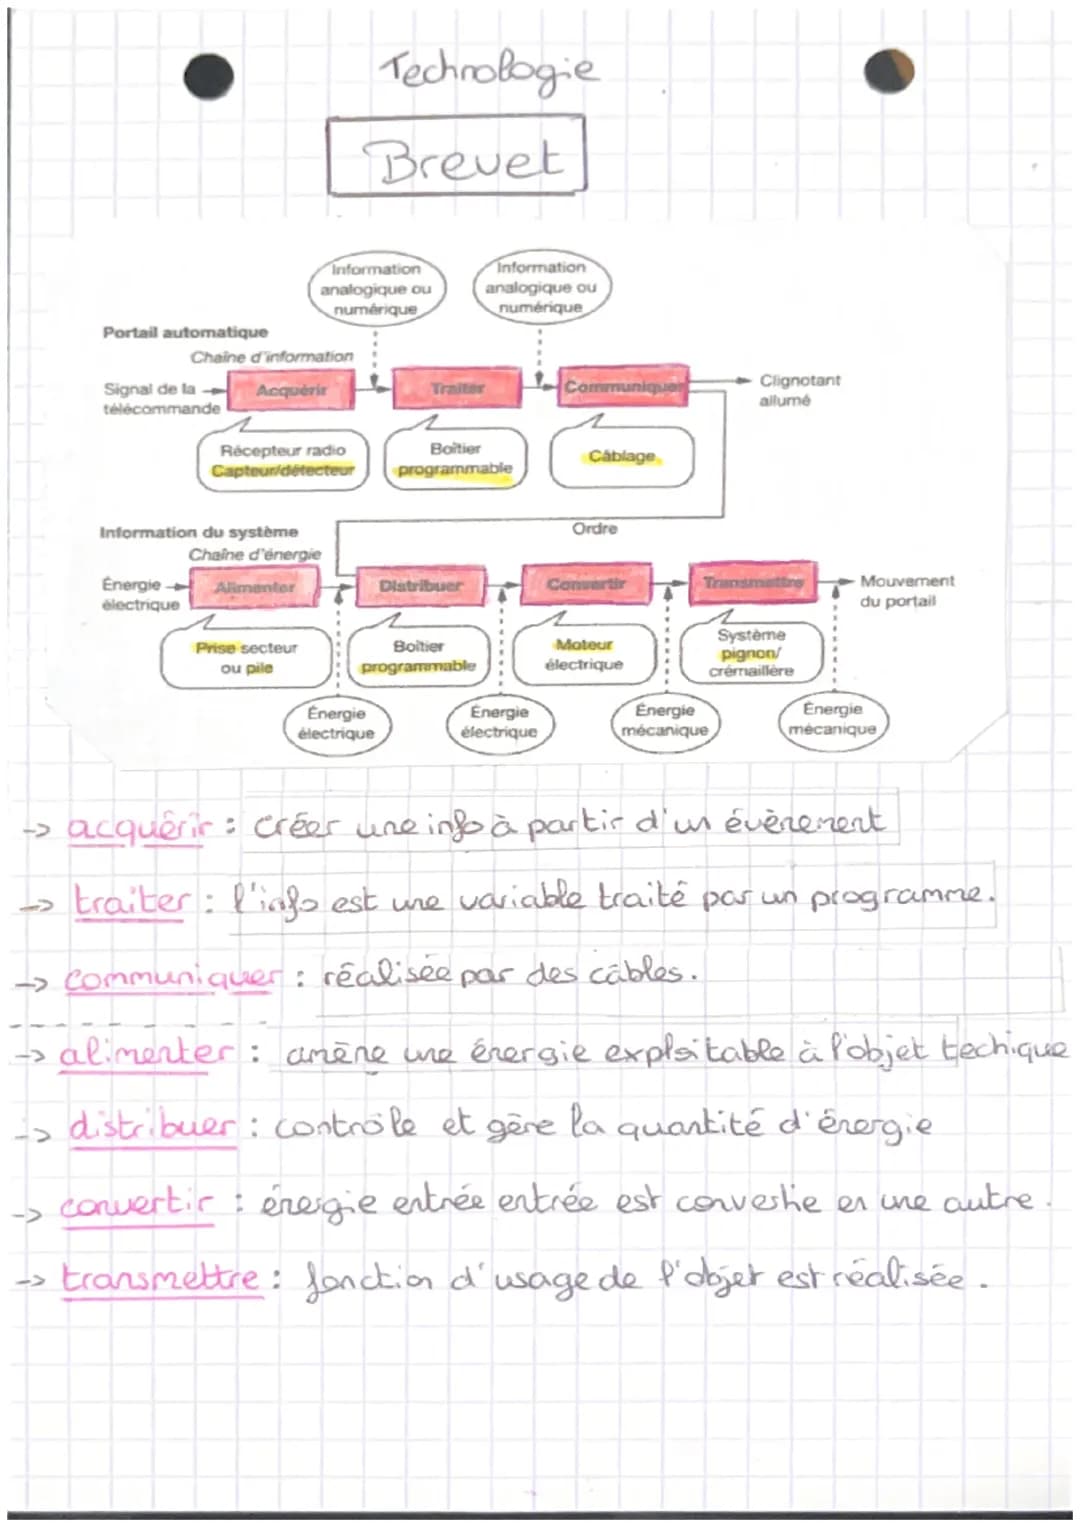 Technologie
Brevet
Information
analogique ou
numérique
Information
analogique ou
numérique
Portail automatique
Chaîne d'information
Signal de la
télécommande
Acquérir
Traiter
Communiquer
Clignotant
allumé
Récepteur radio
Capteur/détecteur
Boîtier
programmable
Câblage
Ordre
Information du système
Chaîne d'énergie
Énergie
électrique
Alimenter
Distribuer
Convertir
Transmettre
Mouvement
du portail
Prise secteur
ou pile
Boîtier
programmable
Moteur
électrique
Système
pignon/
crémaillère
Énergie
électrique
Énergie
électrique
Énergie
mécanique
Énergie
mécanique
-> acquérir : créer une info à partir d'un évènement
-> traiter : l'info est une variable traité par un programme.
-> communiquer : réalisée par des câbles.
-> alimenter : amène une énergie exploitable à l'objet techique
-> distribuer : contrôle et gère la quantité d'énergie
-> convertir : énergie entrée entrée est convertie en une autre.
-> transmettre : fonction d'usage de l'objet est réalisée.